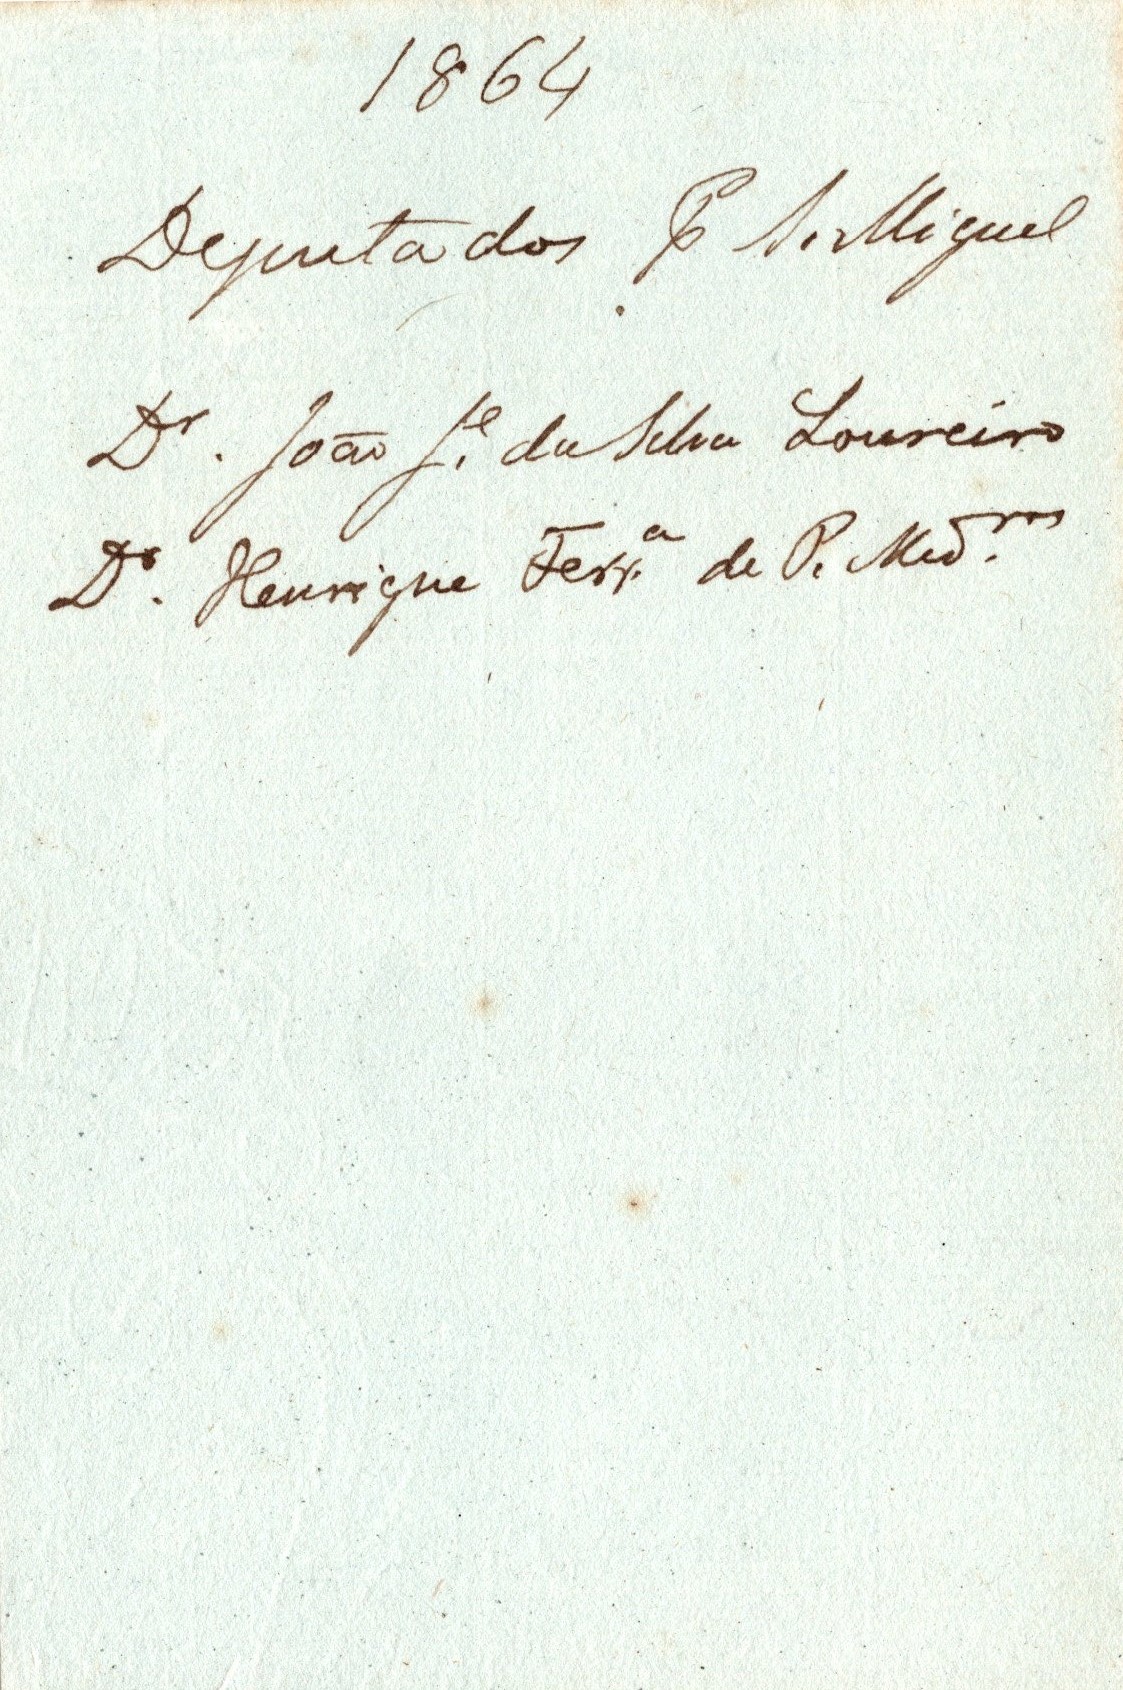 1864
Deputados P S. Miguel
Dr. João Je. da Silva Loureiro
Dr. Henrique Ferra. de P. Medros.